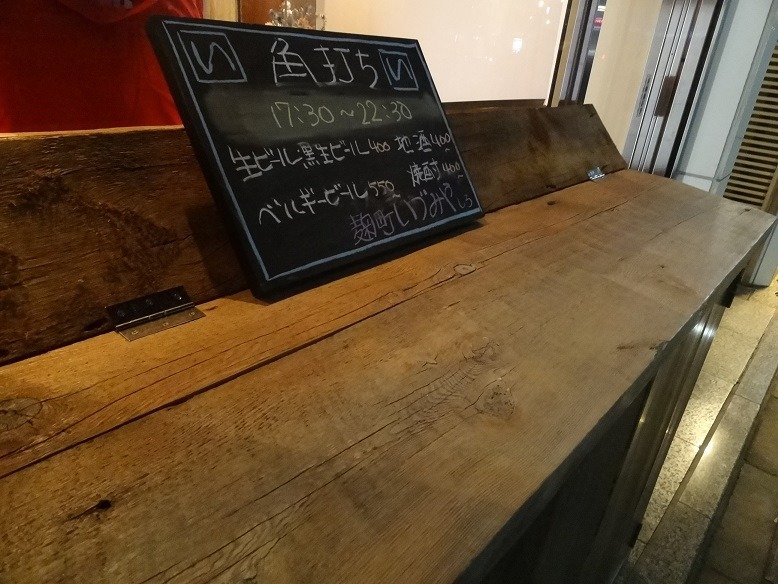 い 角打ち い
17:30～22:30
生ビール黒生ビール400 地酒400
ベルギービール550 焼酎400
麹町いづみや